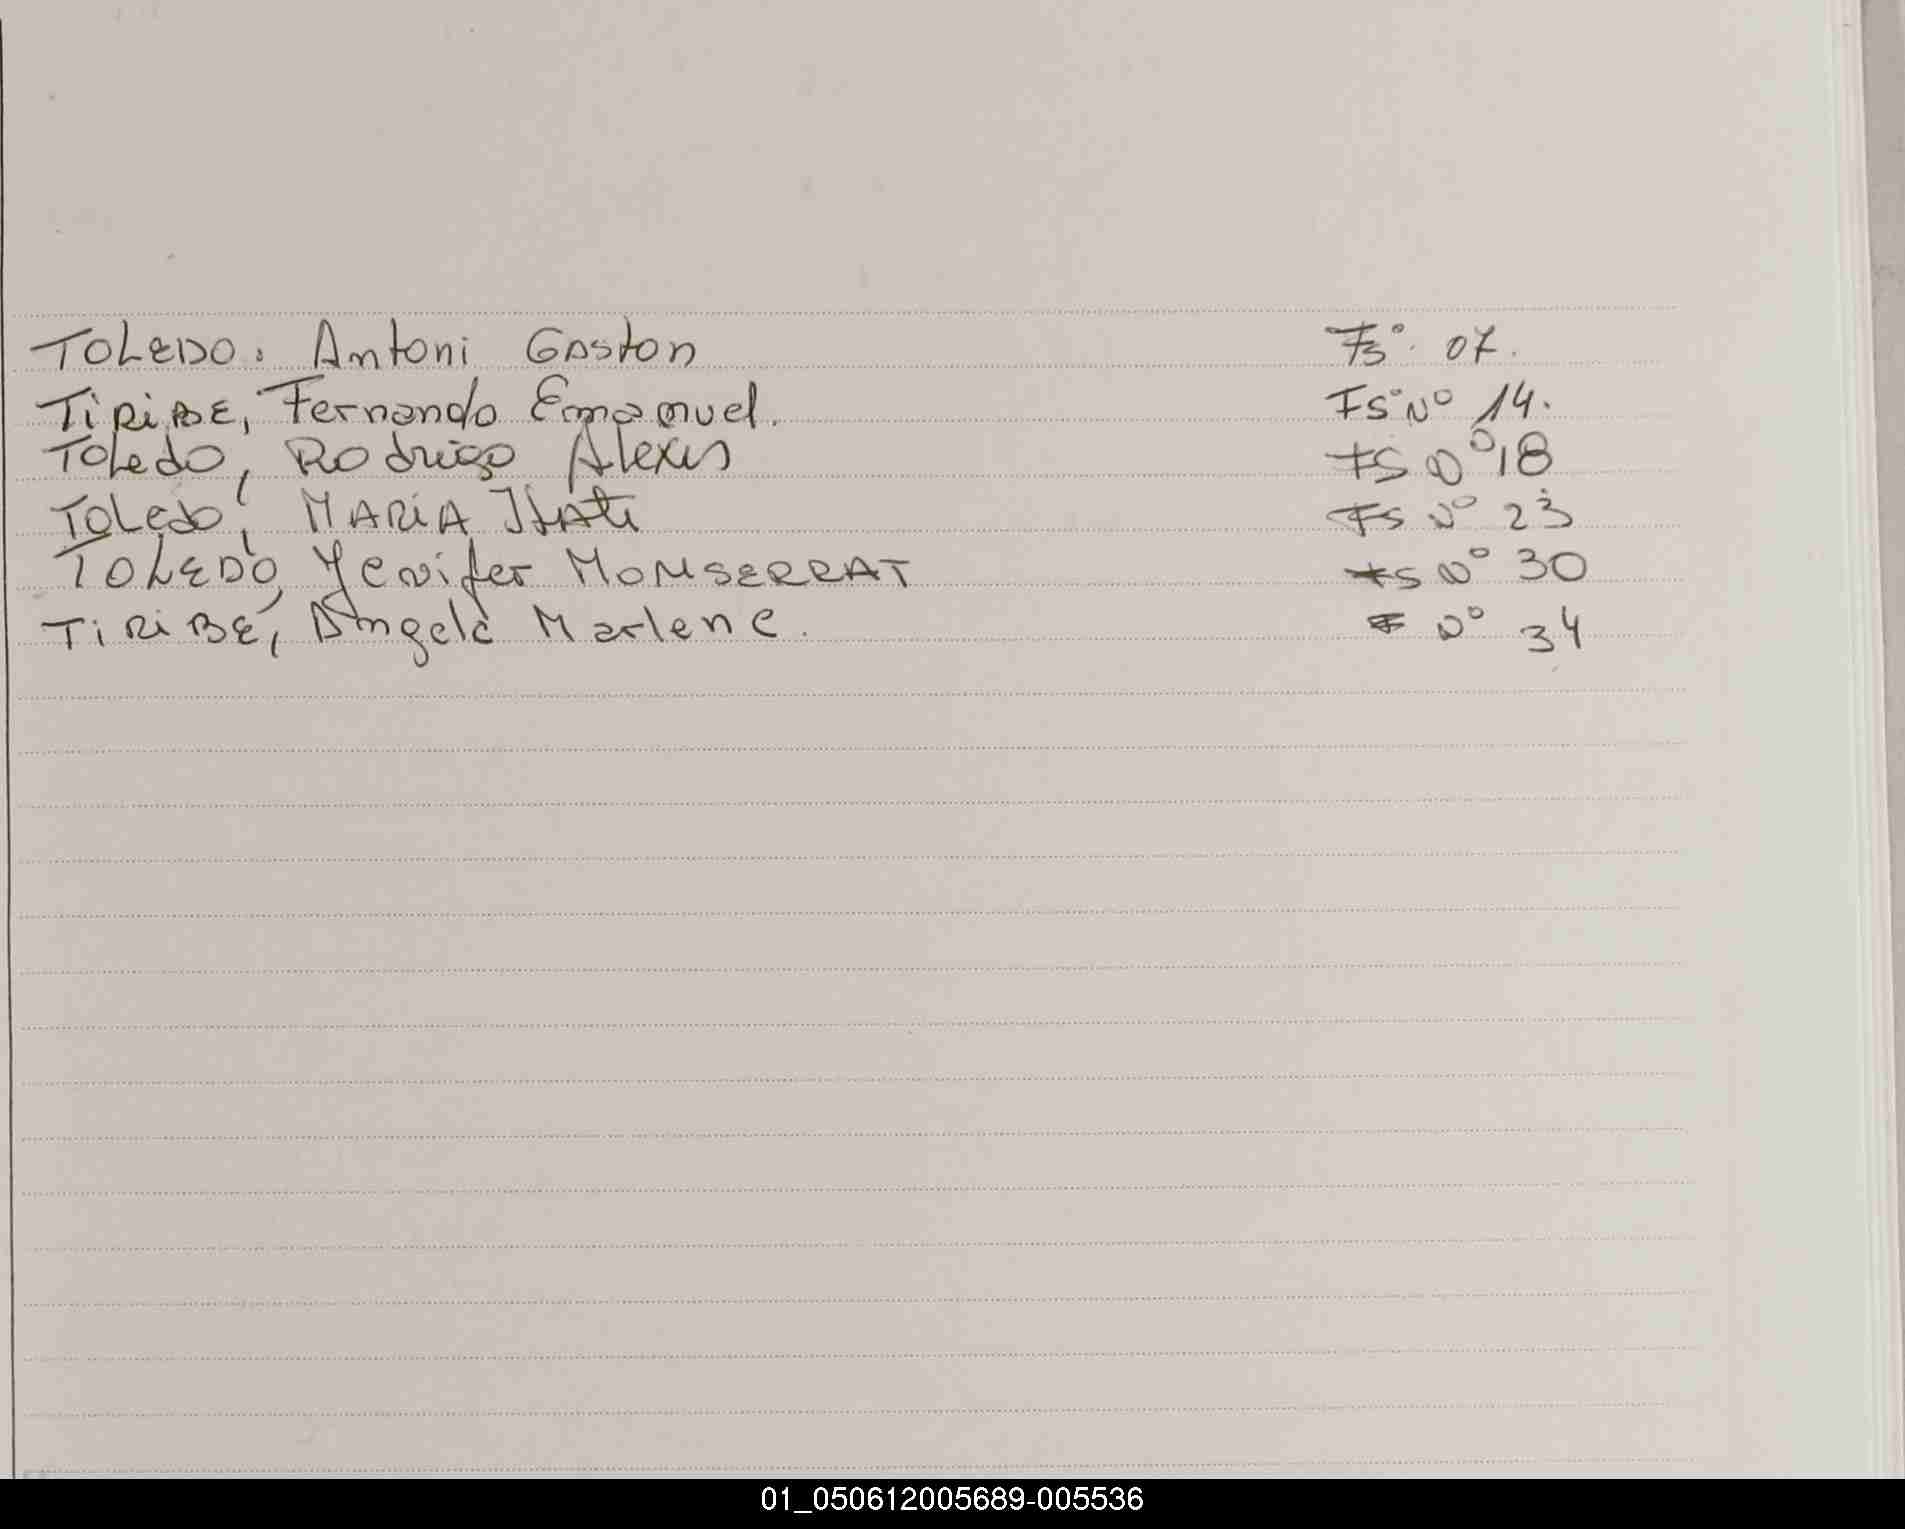 TOLEDO: Antoni Gaston Fs° 07.
TiRiBE, Fernando Emanuel. Fs° N° 14.
Toledo, Rodrigo Alexis Fs N° 18
Toledo, MARiA Itati Fs N° 23
TOLEDO, Yenifer MONSERRAT Fs N° 30
TiRiBE, Angela Marlene. F N° 34
01_050612005689-005536